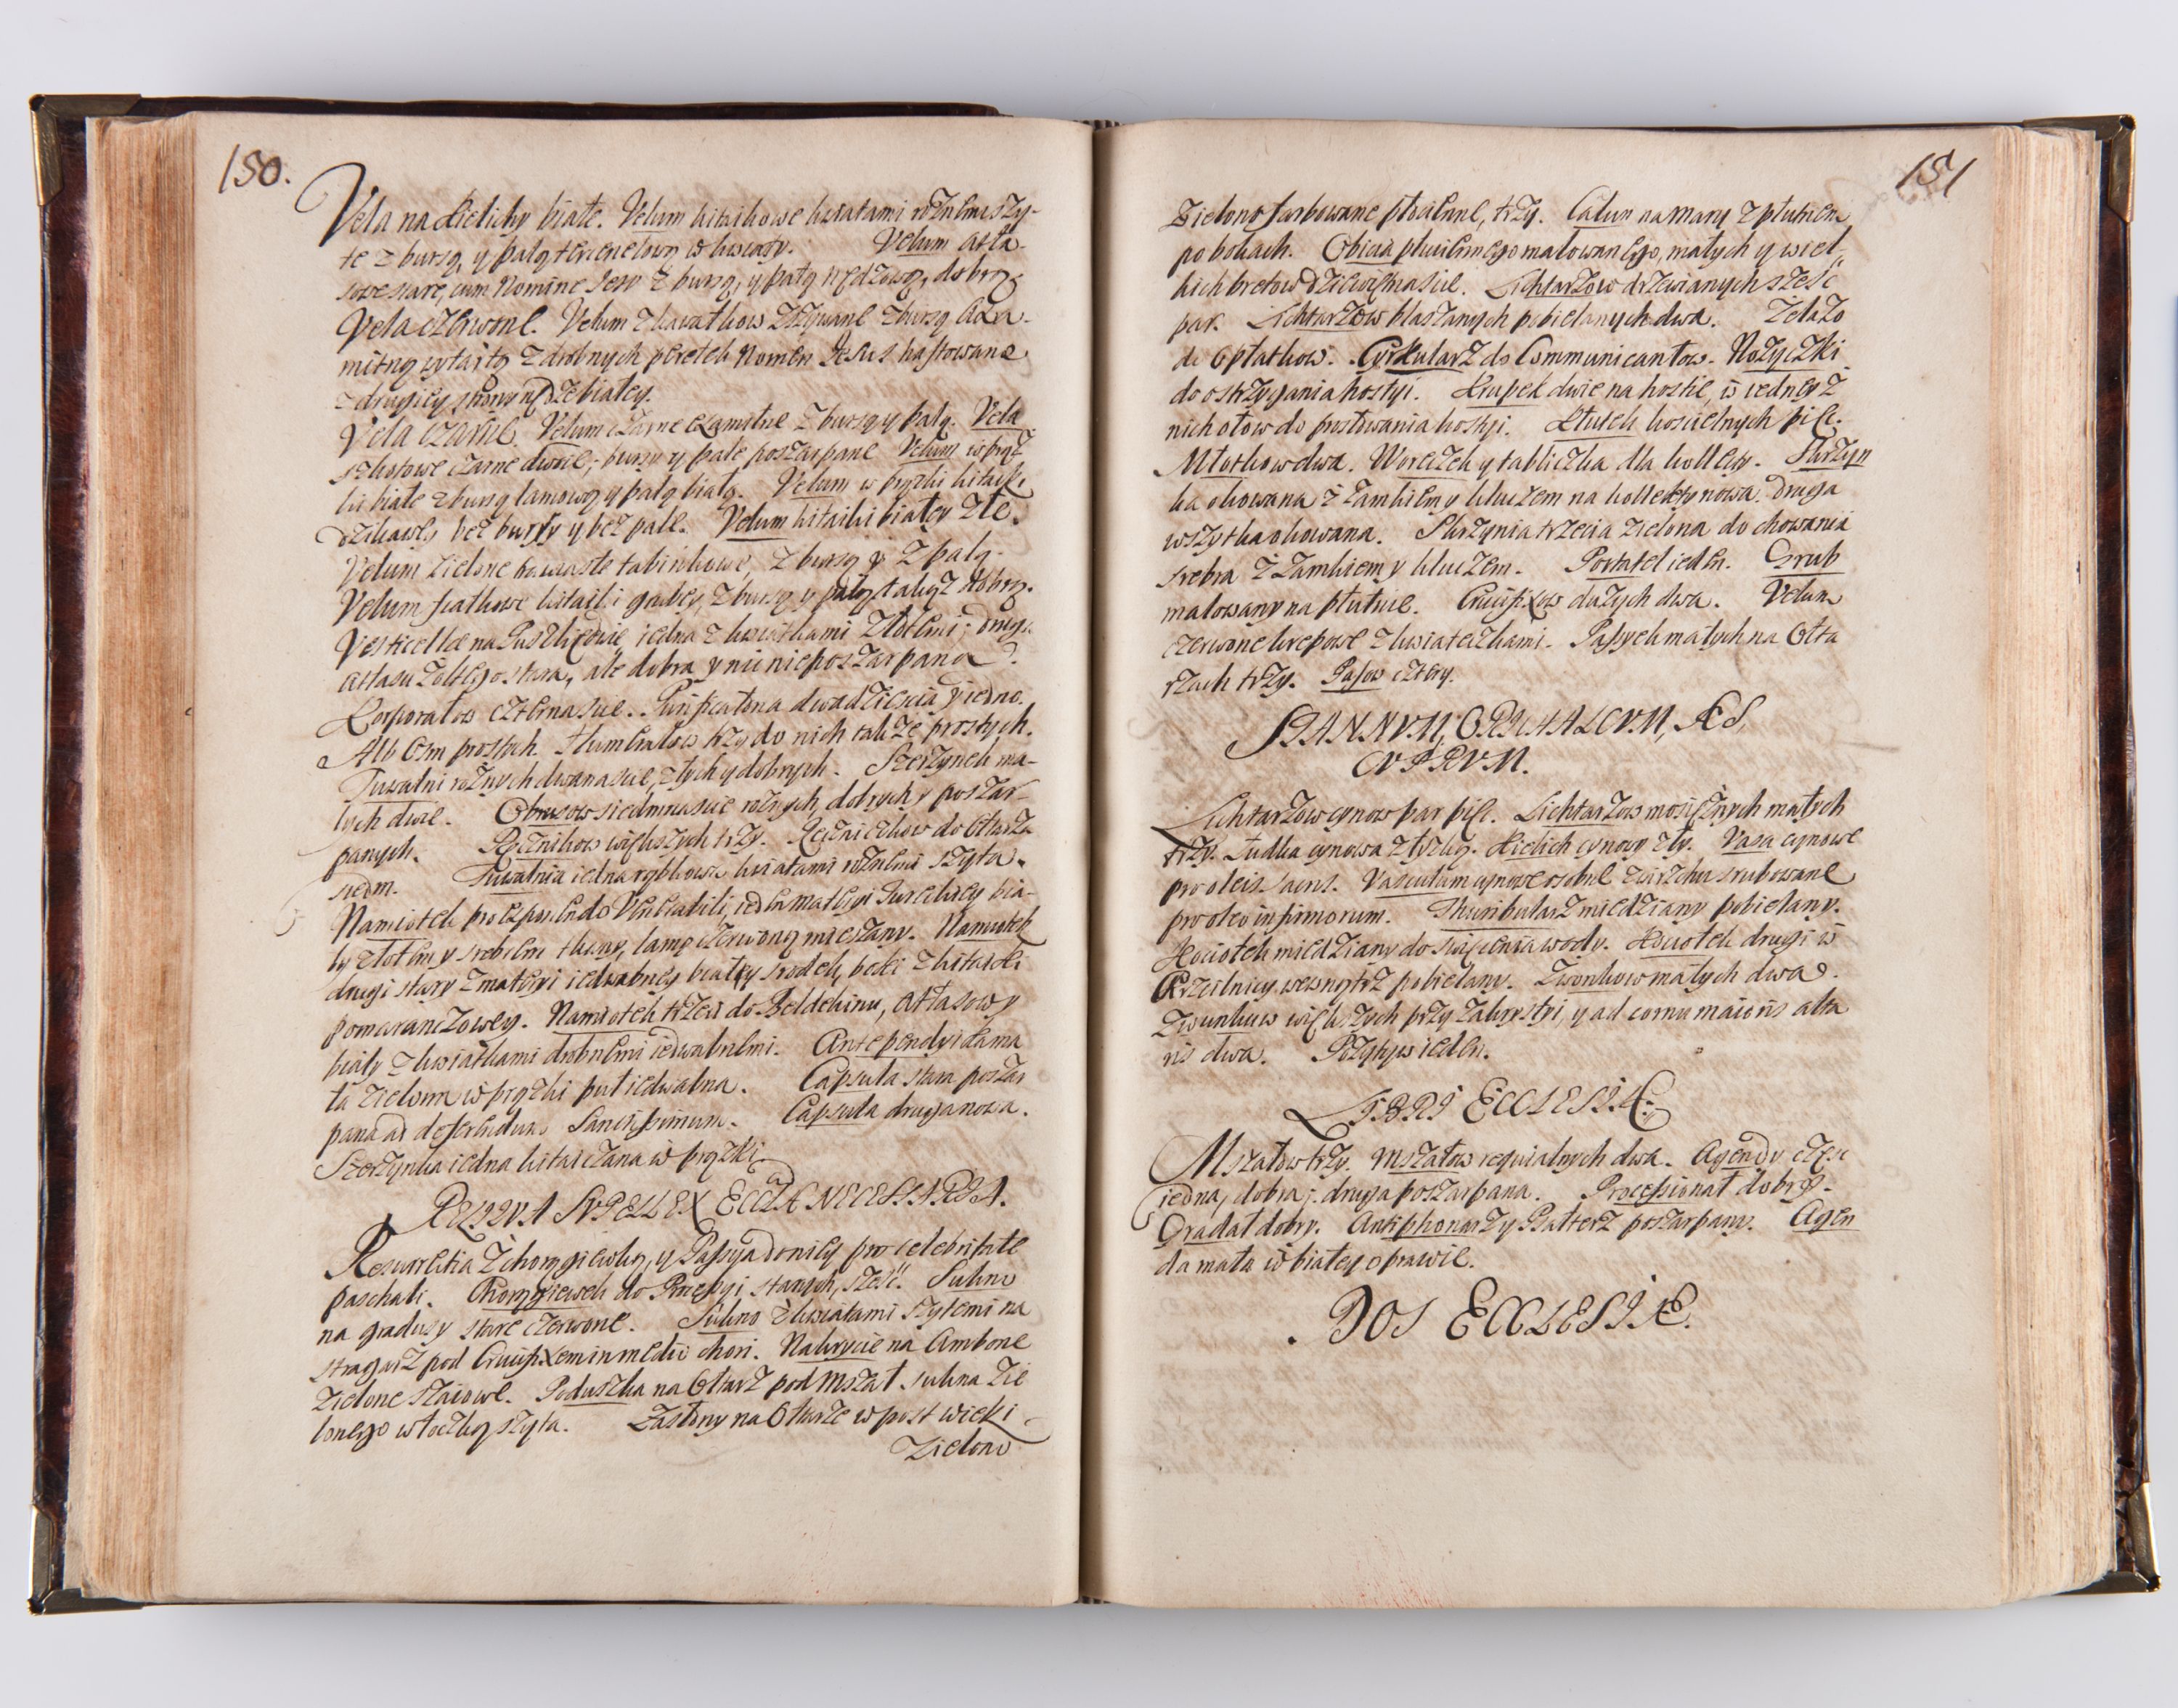 150.
Vela na Kielichy białe. Velum kitaikowe kwiatami rożnemi szy-
te z bursą, y palą tercenelową w kwiaty. Velum atła-
sowe stare, cum Nomine Jesu z bursą, y palą nędzową, dobrą
Vela czerwone. Velum z kawałkow zszywane z bursą Axa-
mitną wytartą z drobnych perełek Nomen Jesus haftowane
z drugiey strony
Vela czarne. Velum czarne axamitne z bursą y palą. Vela
czarne dwoie, bursy y pale poszarpane Velum w prąż
ki białe z bursą lamową y palą białą. Velum w prążki kitaiki
bez bursy y bez pale. Velum kitaiki białey złe.
Velum zielone kwiaste tabinkowe, z bursą y z palą.
Velum siatkowe kitaiki grubey, z bursą y palą także dobrą.
Vesticellae na Puszkę dwie iedna z kwiatkami złotemi; druga
atłasu żołtego stara, ale dobra y nic nie poszarpana.
Korporałow czternaście. Purificatoria dwadzieścia y iedno.
Alb Osm prostych. Humerałow trzy do nich także prostych.
Tuwalni rożnych dwanaście, złych y dobrych. Szerzynek ma-
łych dwie. Obrusow siedmnaście rożnych, dobrych y poszar-
panych. Ręcznikow większych trzy. Ręczniczkow do Ołtarza
siedm. Tuwalnia iedna rąbkowa kwiatami rożnemi szyta.
Namiotek pro exponendo Venerabili, ieden materyi Tureckiey bia-
ły złotem y srebrem tkany, lamą czerwoną mieszany. Namiotek
drugi stary z materyi iedwabney białey srodek, boki z kitaiki
pomaranczowey. Namiotek trzeci do Beldekinu, atłasowy
biały z kwiatkami drobnemi iedwabnemi. Antependyi
ta zielona w prążki puł iedwabna. Capsula stara poszar
pana ad deferendum Sanctissimum. Capsula druga nowa.
Szerzynka iedna kitaiczana w prążki.
RELIQUA SUPELLEX ECCLÆ NECESSARIA.
Resurrekcia z chorągiewką, y Passya do niey pro celebritate
paschali. Chorągiewek do Processyi starych, sześć. Sukno
na gradusy stare czerwone. Sukno z kwiatami szytemi na
stragarz pod Crucifixem in medio chori. Nakrycie na Ambone
zielone szaiowe. Poduszka na Ołtarz pod Mszał sukna zie
lonego włoczką szyta. Zasłony na Ołtarze w post wielki
Zielono
151
Zielono farbowane płocienne, trzy. Całun na mary z płutnem
po bokach. Obicia płuciennego malowanego, małych y wiel
kich bretow dziewiętnaście. Lichtarzow drzewianych sześć
par. Lichtarzow blaszanych pobielanych dwa. Zelazo
do Opłatkow. Cyrkularz do Communicantow. Nożyczki
do ostrzygania hostyi. Krupek dwie na hostie, w iedney z
nich ołow do prostowania hostyi. Kłutek koscielnych pięć.
Młotkow dwa. Woreczek y tabliczka dla kollekty. Skrzyn
ka okowana z zamkiem y kluczem na kollektę nowa. Druga
wszystka okowana. Skrzynia trzecia zielona do chowania
srebra z zamkiem y kluczem. Portatel ieden. Grub
malowany na płutnie. Crucifixow dużych dwa. Velum
czerwone krepowe z kwiateczkami. Passyek małych na Ołta
rzach trzy. Pasow cztery.
STANNUM, ORICHALCUM, ÆS,
CUPRUM.
Lichtarzow cynow par pięć. Lichtarzow mosiężnych małych
trzy. Łudka cynowa z łyszką. Kielich cynowy zły. Vasa cynowe
pro oleis sacris. Vasculum cynowe osobne z wirzchu srubowane
pro oleo infirmorum. Thuribularz miedziany pobielany.
Kociołek miedziany do święcenia wody. Kociołek drugi w
Krzcilnicy wewnątrz pobielany. Zwonkow małych dwa.
Zwonkow większych przy Zakrystyi, y ad cornu maioris alta
ris dwa. Pozytyw ieden.
LIBRI ECCLESIÆ.
Mszałow trzy. Mszałow requialnych dwa. Agendy częsc
iedna, dobra; druga poszarpana. Processionał dobry.
Graduał dobry. Antiphonarz y Psałterz poszarpany. Agen
da mała w białey oprawie.
DOS ECCLESIÆ.